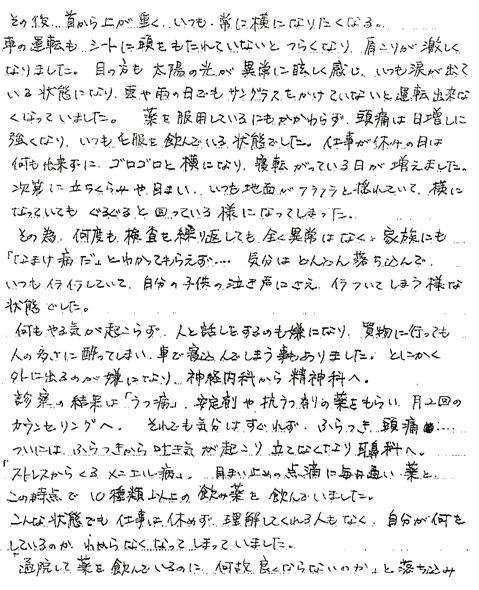 その後、首から上が重く、いつも常に横になりたくなる。
車の運転も、シートに頭をもたれていないとつらくなり、肩こりが激しく
なりました。目の方も太陽の光が異常に眩しく感じ、いつも涙が出て
いる状態になり、曇や雨の日でもサングラスをかけていないと運転出来な
くなっていました。薬を服用しているにもかかわらず、頭痛は日増しに
強くなり、いつも毛布を飲んでいる状態でした。仕事が休みの日は
何も出来ずに、ゴロゴロと横になり、寝転がっている日が増えました。
次第に立ちくらみや目まい、いつも地面がフラフラと揺れていて、横に
なっていてもぐるぐると回っている様になってしまった。
その為、何度も検査を繰り返しても全く異常はなく、家族にも
「なまけ病だ」とわかってもらえず… 気分はどんどん落ち込んで、
いつもイライラしていて、自分の子供の泣き声にさえ、イラついてしまう様な
状態でした。
何もやる気が起こらず、人と話しをするのも嫌になり、買物に行っても
人の多さに酔ってしまい、車で寝込んでしまう事もありました。とにかく
外に出るのが嫌になり、神経内科から精神科へ。
診察の結果は「うつ病」、安定剤や抗うつ剤の薬をもらい、月2回の
カウンセリングへ。それでも気分はすぐれず、ふらつき、頭痛…
ついには、ふらつきから吐き気が起こり、立てなくなり耳鼻科へ。
「ストレスからくるメニエル病」。目まい止めの点滴に毎日通い、薬と
この時点で10種類以上の飲み薬を飲んでいました。
こんな状態でも仕事は休めず、理解してくれる人もなく、自分が何を
しているのか、わからなくなってしまっていました。
「通院して薬を飲んでいるのに、何故良くならないのか」と落ち込み